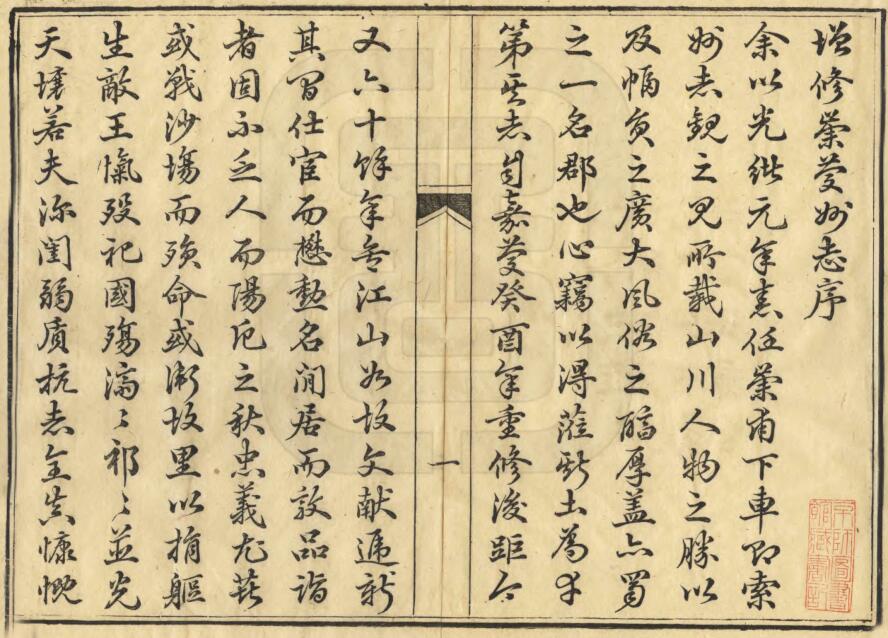 增修崇慶州志序
余以光緒元年任崇甫下車即索
州志觀之見所載山川人物之勝以
及幅員之廣大風俗之醇厚蓋亦蜀
之一名郡也心竊以得蒞斯土為幸
第其志自嘉慶癸酉年重修後距今
一
又六十餘年矣江山如故文獻遞新
其間仕宦而懋勳名閒居而敦品詣
者固不乏人而陽厄之秋忠義尤
或戰沙塲而殞命或衛故里以捐軀
生敵王愾歿祀國殤濟〻祁〻並光
天壤若夫深閨弱質抗志全貞慷慨
京師圖書
館藏書記